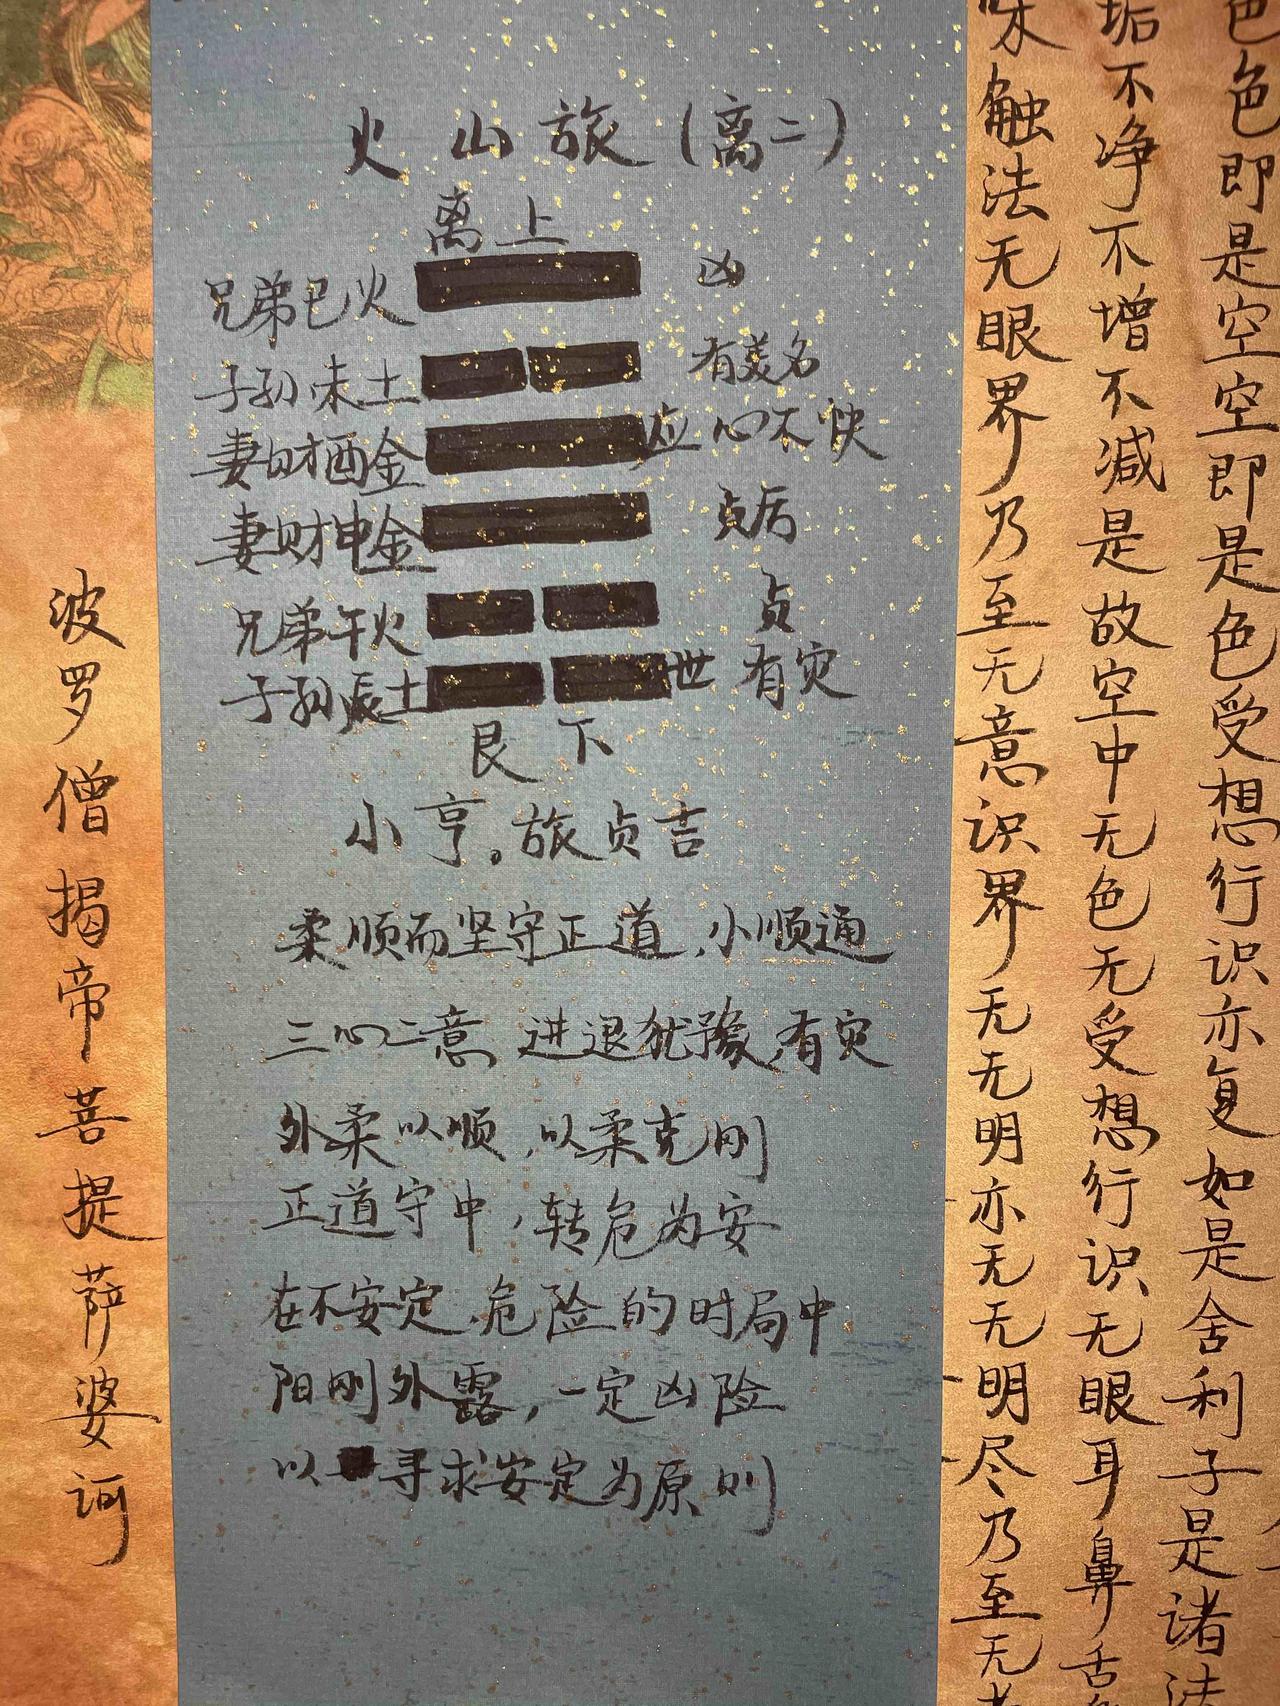 火山旅(离二)
离上
兄弟巳火 凶
子孙未土 有美名
妻财酉金 应 心不快
妻财申金 贞厉
兄弟午火 贞
子孙辰土 世 有灾
艮下
小亨。旅贞吉
柔顺而坚守正道,小顺通
三心二意 进退犹豫,有灾
外柔以顺,以柔克刚
正道守中,转危为安
在不安定、危险的时局中
阳刚外露,一定凶险
以寻求安定为原则
色即是空空即是色受想行识亦复如是舍利子是诸法
垢不净不增不减是故空中无色无受想行识无眼耳鼻舌
味触法无眼界乃至无意识界无无明亦无无明尽乃至无老
波罗僧揭帝菩提萨婆诃